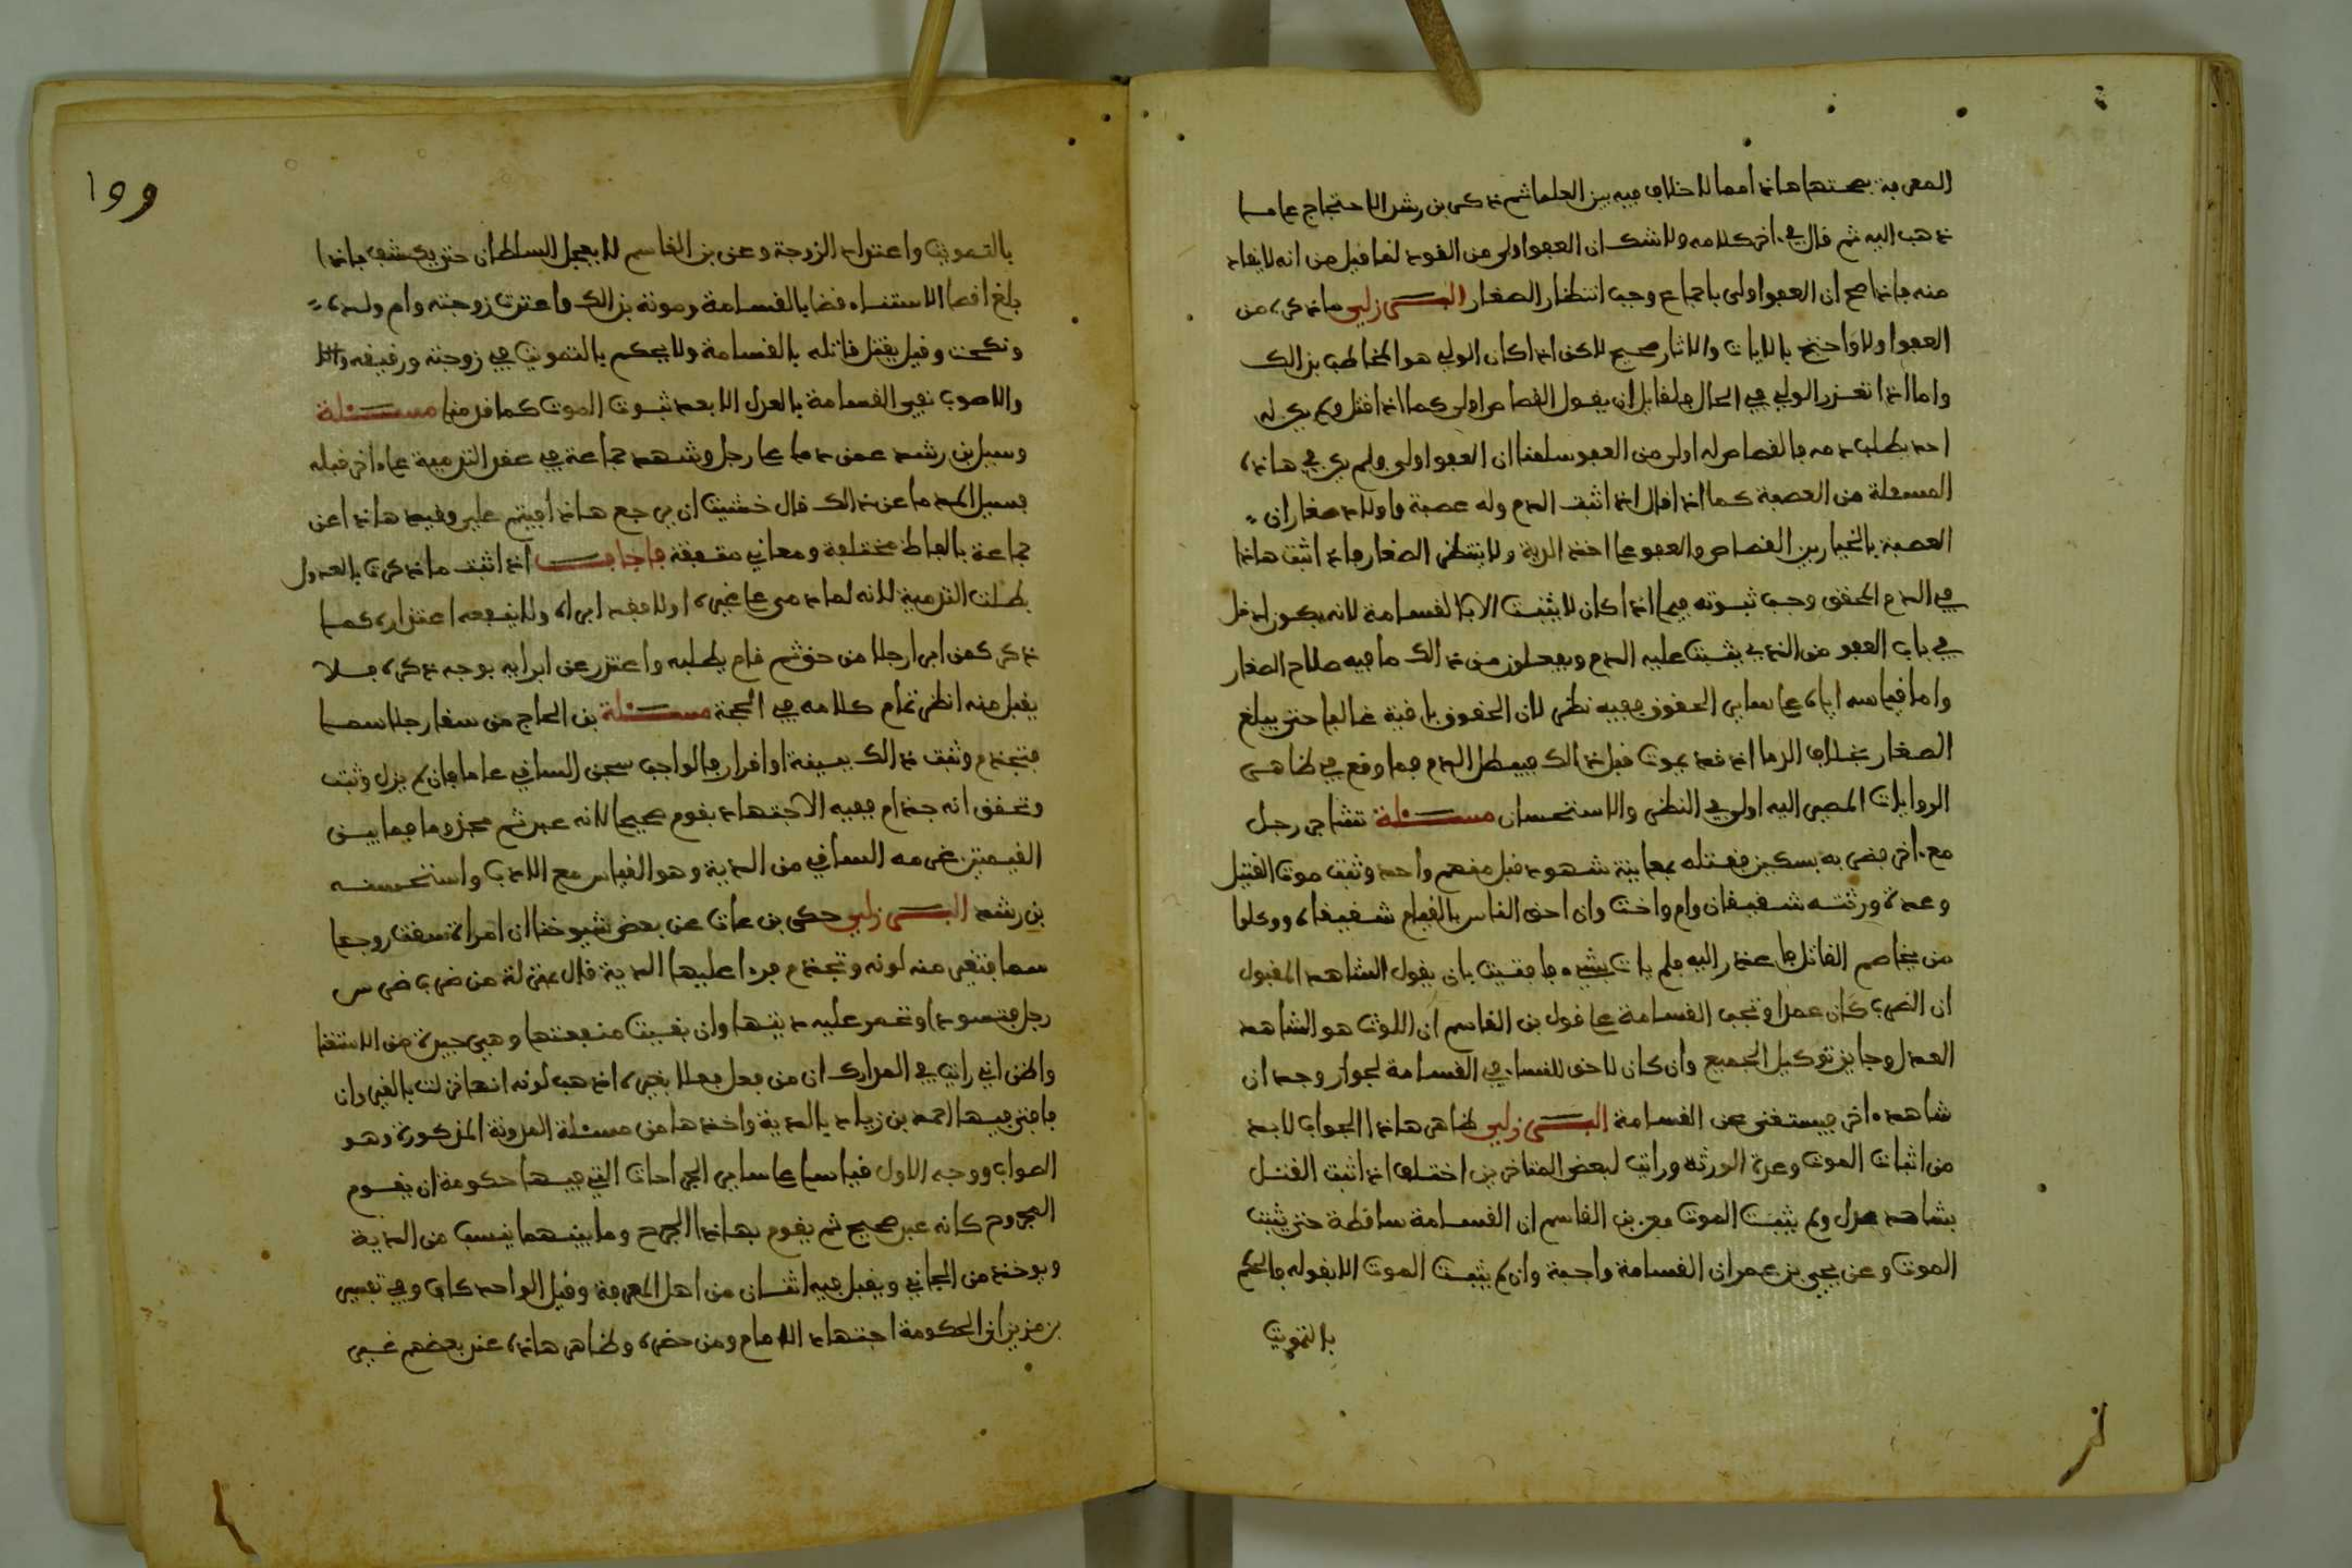 المعرفة بصحتها هاذا مما لا خلاف فيه بين العلما ثم ذكر بن رشد الاحتجاج على ما
ذهب اليه ثم قال في ءاخر كلامه ولا شك ان العفو اولى من القود لما قيل من انه لا يقاد
منه فاذا صح ان العفو اولى باجماع وجب انتظار الصغار البرزلي ما ذكره من
العفو اولا واحتج بالايات والاثار صحيح لاكن اذا كان الولي هو المخاطب بذالك
واما اذا تعذر الولي في الحال فلقايل ان يقول القصاص اولى كما اذا قتل ولم يكن له
احد يطلب دمه فالقصاص له اولى من العفو سلمنا ان العفو اولى فلم يكن في هاذه
المسئلة من العصبة كما اذا قال اذا ثبت الدم وله عصبة واولاد صغار ان
العصبة بالخيار بين القصاص والعفو على اخذ الدية ولا ينتظر الصغار فاذ اثبت هاذا
في الدم المحقق وجب ثبوته فيما اذا كان لا يثبت الا بالقسامة لانه يكون ادخل
في باب العفو من الذي يثبت عليه الدم ويحلون من ذالك ما فيه صلاح الصغار
واما قياسه اياه على ساير الحقوق ففيه نظر لان الحقوق باقية غالبا حتى يبلغ
الصغار بخلاف الدما اذ قد يموت قبل ذالك فيبطل الدم فما وقع في ظاهر
الروايات المصير اليه اولى في النظر والاستحسان مسئلة تشاجر رجل
مع ءاخر فضربه بسكين فقتله بمعاينة شهود قبل منهم واحد وثبت موت القتيل
وعدة ورثته شقيقان وام واخت وان احق الناس بالقيام شقيقاه ووكلوا
من يخاصم القاتل فاعذر اليه فلم يات بشيء فافتيت بان يقول الشاهد المقبول
ان الضرب كان عمدا وتجب القسامة على قول بن القاسم ان اللوث هو الشاهد
العدل وجايز توكيل الجميع وان كان لا حق للنساء في القسامة لجواز وجد ان
شاهد ءاخر فيستغنى عن القسامة البرزلي ظاهر هاذا الجواب لا بد
من اثبات الموت وعدة الورثة ورايت لبعض المتاخرين اختلف اذا ثبت القتل
بشاهد عدل ولم يثبت الموت فعن بن القاسم ان القسامة ساقطة حتى يثبت
الموت وعن يحيى بن عمر ان القسامة واجبة وان لم يثبت الموت الا بقوله فالحكم
بالتمويت
١٩٩
بالتمويت واعتداد الزوجة وعن بن القاسم لا يعجل السلطان حتى يكشف فاذا
بلغ اقصا الاستيناء قضا بالقسامة وموته بذالك واعتدت زوجته وام ولده
ونكحت وقيل يقتل قاتله بالقسامة ولا يحكم بالتمويت في زوجته ورقيقه
والاصوب نفي القسامة بالعدل الا بعد ثبوت الموت كما قدمنا مسئلة
وسيل بن رشد عمن دما على رجل وشهد جماعة في عقد التدمية على ءاخر قبله
فسيل المدما عن ذالك قال خشيت ان يرجع هاذا فيتم علي وقيد هاذا عن
جماعة بالفاظ مختلفة ومعاني متفقة فاجاب اذا ثبت ما ذكرت بالعدول
بطلت التدمية لانه لما دمى على غيره اولا فقد ابراه ولا ينفعه اعتذاره كما
ذكر كمن ابرا رجلا من حق ثم قام يطلبه واعتذر عن ابرايه بوجه ذكره فلا
يقبل منه انظر تمام كلامه في الحجة مسئلة بن الحاج من سقا رجلا سما
فتجذم وثبت ذالك ببينة او اقرار فالواجب سجن الساقي عاما فان لم يزل وثبت
وتحقق انه جذام ففيه الاجتهاد يقوم صحيحا لانه عبد ثم مجذوما فما بين
القيمتين غرمه الساقي من الدية وهو القياس مع الادب واستحسنه
بن رشد البرزلي حكى بن عات عن بعض شيوخنا ان امراة سقت زوجها
سما فتغير منه لونه وتجذم فرءا عليها الدية قال بمنزلة من ضرب ضرس
رجل فتسود اوتحمر عليه ديتها وان بقيت منفعتها وهي جيدة من الاستغنا
واظن اني رايت في المدارك ان من فعل فعلا بغيره اذهب لونه انها نزلت بالقيروان
فافتى فيها احمد بن زياد بالدية واخذها من مسئلة المدونة المذكورة وهو
الصواب ووجه الاول قياسا على ساير الجراحات التي فيها حكومة ان يقوم
المجروح كانه عبد صحيح ثم يقوم بهاذا الجرح وما بينهما ينسب من الدية
ويوخذ من الجاني ويقبل فيه اثنان من اهل المعرفة وقيل الواحد كاف وفي تفسير
بن مزين ان الحكومة اجتهاد الامام ومن حضره وظاهر هاذه عند بعضهم غير